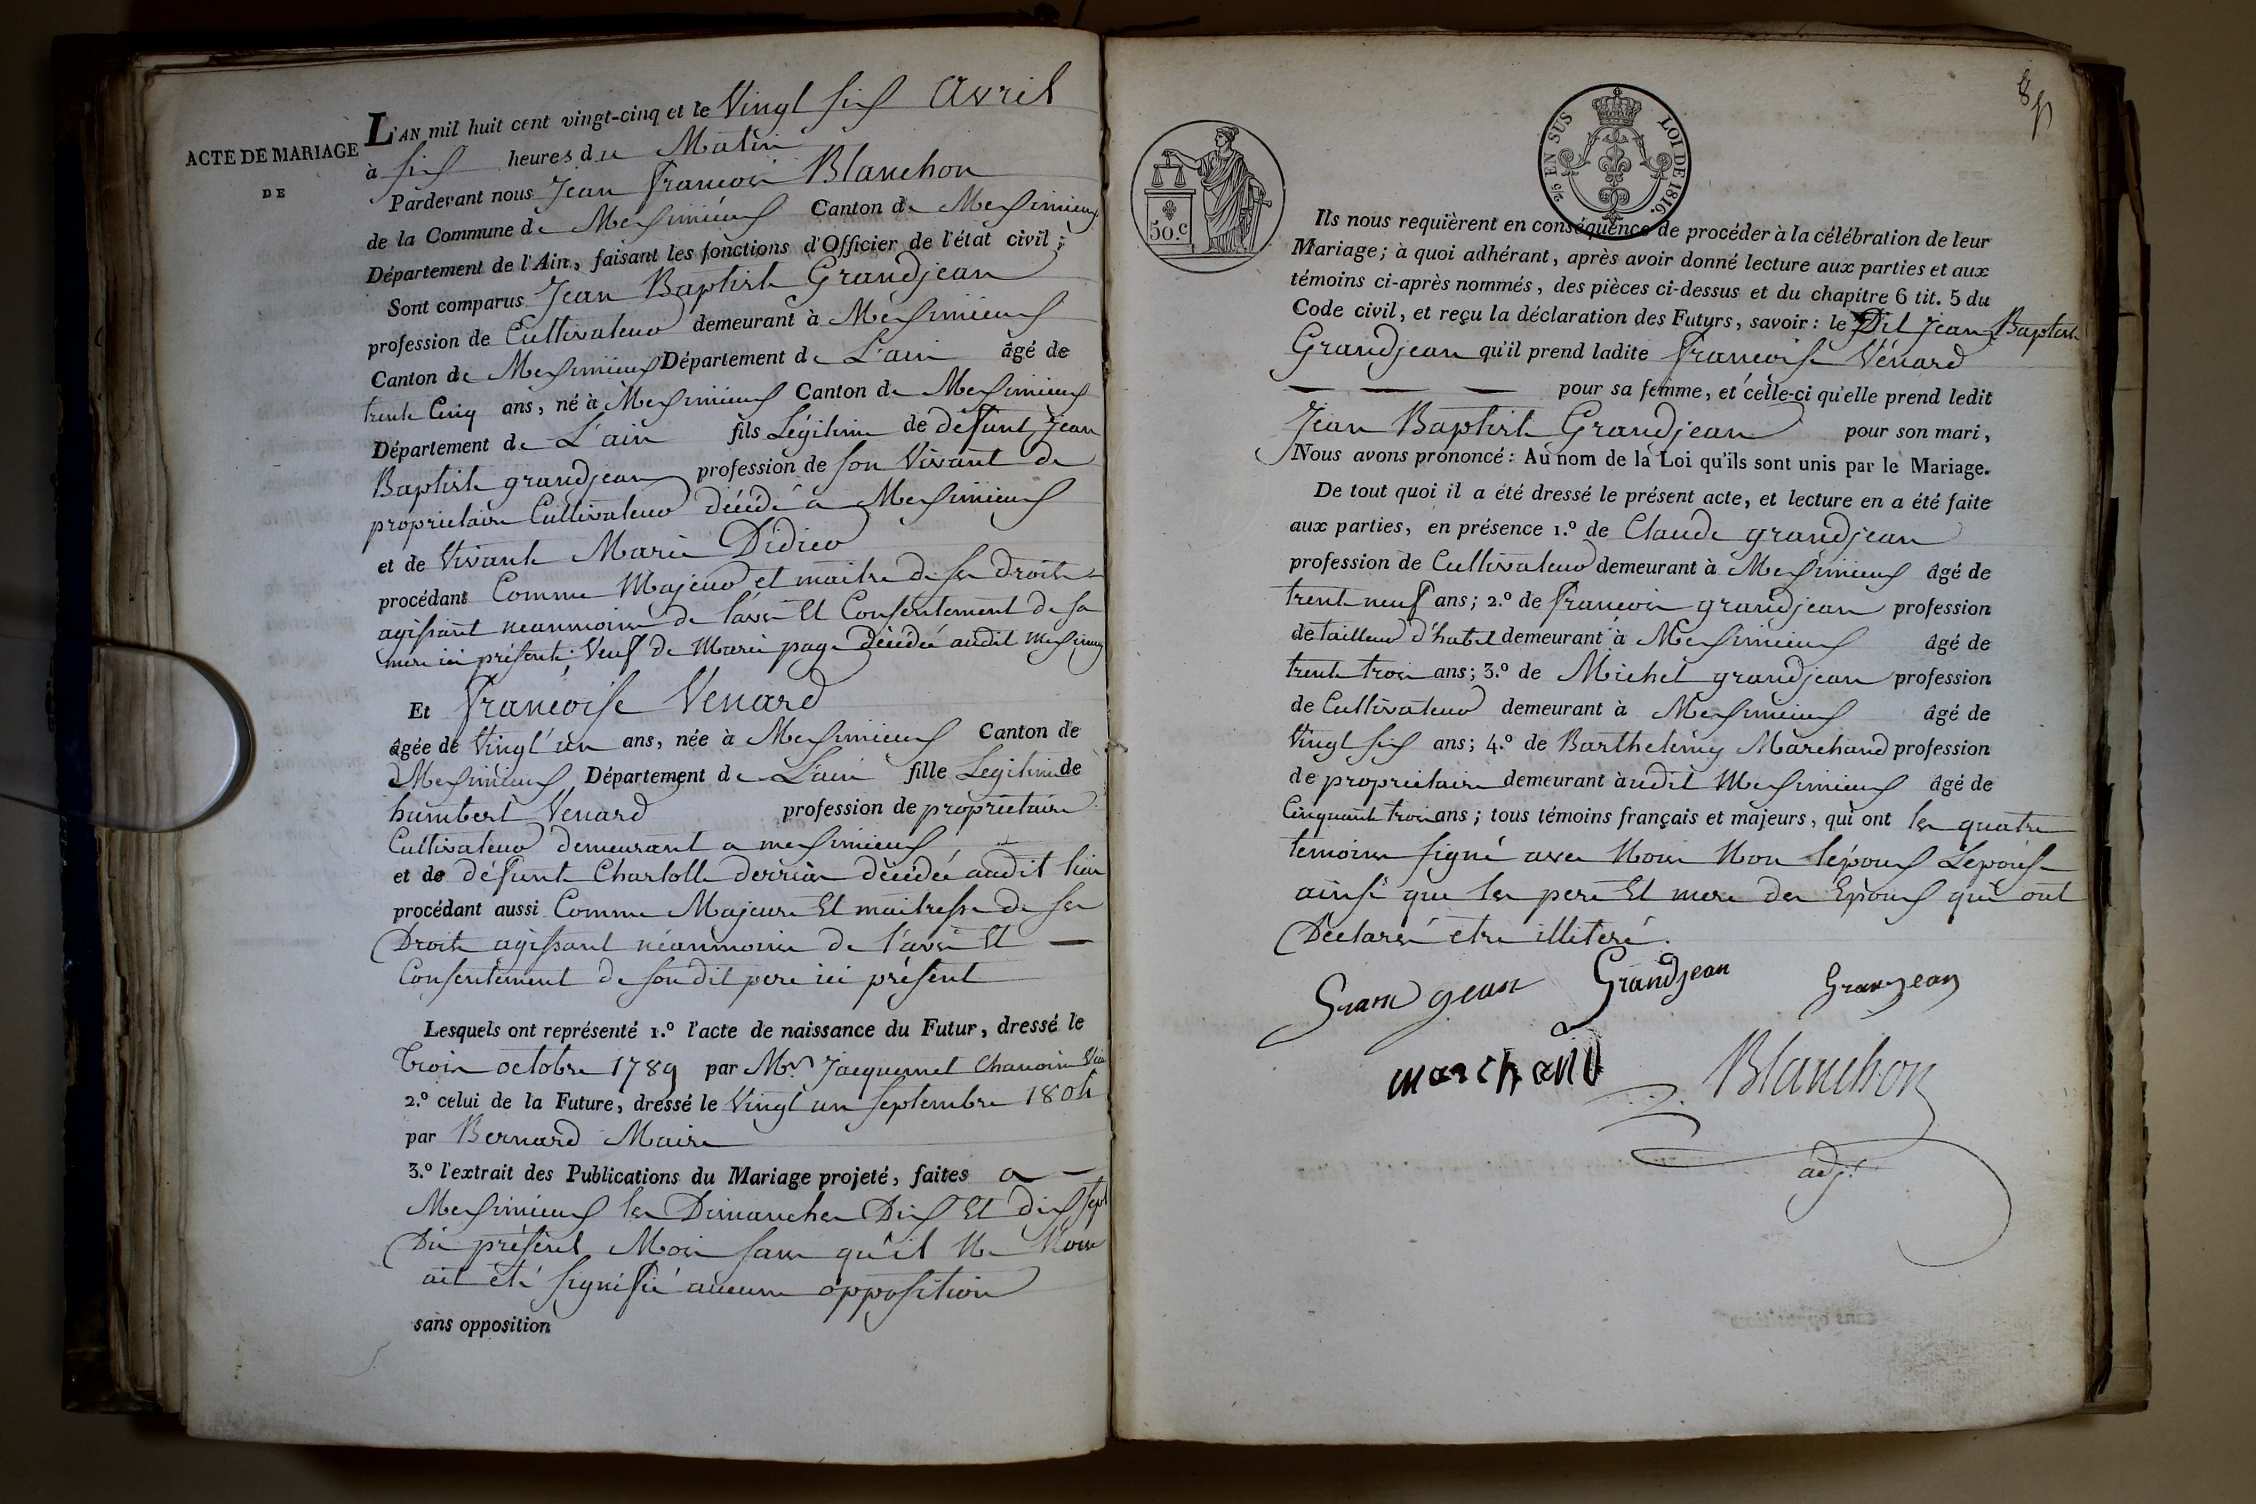 ACTE DE MARIAGE
DE
L'AN mil huit cent vingt-cinq et le Vingt six Avril
à six heures du Matin
Pardevant nous Jean François Blanchon
de la Commune de Meximieux Canton de Meximieux
Département de l'Ain, faisant les fonctions d'Officier de l'état civil;
Sont comparus Jean Baptiste Grandjean
profession de Cultivateur demeurant à Meximieux
Canton de Meximieux Département de L'ain âgé de
trente Cinq ans, né à Meximieux Canton de Meximieux
Département de L'ain fils Légitime de défunt Jean
Baptiste grandjean profession de son Vivant de
proprietaire Cultivateur décédé a Meximieux
et de Vivante Marie Didier
procédant Comme Majeur et maitre de ses droits
agissant neanmoins de l'avis Et Consentement de sa
mere ici présente. Veuf de Marie page décédée audit Meximieux
Et françoise Venard
âgée de Vingt un ans, née à Meximieux Canton de
Meximieux Département de L'ain fille Legitime de
humbert Venard profession de proprietaire
Cultivateur demeurant a meximieux
et de défunte Charlotte derrias décédée audit lieu
procédant aussi Comme Majeure Et maitresse de ses
Droits agissant néanmoins de l'avis Et —
Consentement de son dit pere ici présent
Lesquels ont représenté 1.º l'acte de naissance du Futur, dressé le
trois octobre 1789 par Mr Jacquemet Chanoine
2.º celui de la Future, dressé le Vingt un septembre 1804
par Bernard Maire
3.º l'extrait des Publications du Mariage projeté, faites a —
Meximieux les Dimanches Dix Et dix sept
Du présent Mois sans qu'il Ne Nous
ait été signifié aucune opposition
sans opposition
50.c
2/5 EN SUS LOI DE 1816.
Ils nous requièrent en conséquence de procéder à la célébration de leur
Mariage; à quoi adhérant, après avoir donné lecture aux parties et aux
témoins ci-après nommés, des pièces ci-dessus et du chapitre 6 tit. 5 du
Code civil, et reçu la déclaration des Futurs, savoir: le Dit Jean Baptiste
Grandjean qu'il prend ladite françoise Vénard
— — — pour sa femme, et celle-ci qu'elle prend ledit
Jean Baptiste Grandjean pour son mari,
Nous avons prononcé: Au nom de la Loi qu'ils sont unis par le Mariage.
De tout quoi il a été dressé le présent acte, et lecture en a été faite
aux parties, en présence 1.º de Claude grandjean
profession de Cultivateur demeurant à Meximieux âgé de
trente neuf ans; 2.º de françois grandjean profession
de tailleur d'habit demeurant à Meximieux âgé de
trente trois ans; 3.º de Michel grandjean profession
de Cultivateur demeurant à Meximieux âgé de
Vingt six ans; 4.º de Barthelemy Marchand profession
de proprietaire demeurant à audit Meximieux âgé de
Cinquante trois ans; tous témoins français et majeurs, qui ont les quatre
temoins signé avec Nous Non l'époux L'epouse
ainsi que les pere Et mere des Epoux qui ont
Déclaré être illiteré.
Gram gean Grandjean Granjean
marchand Blanchon
adj.t